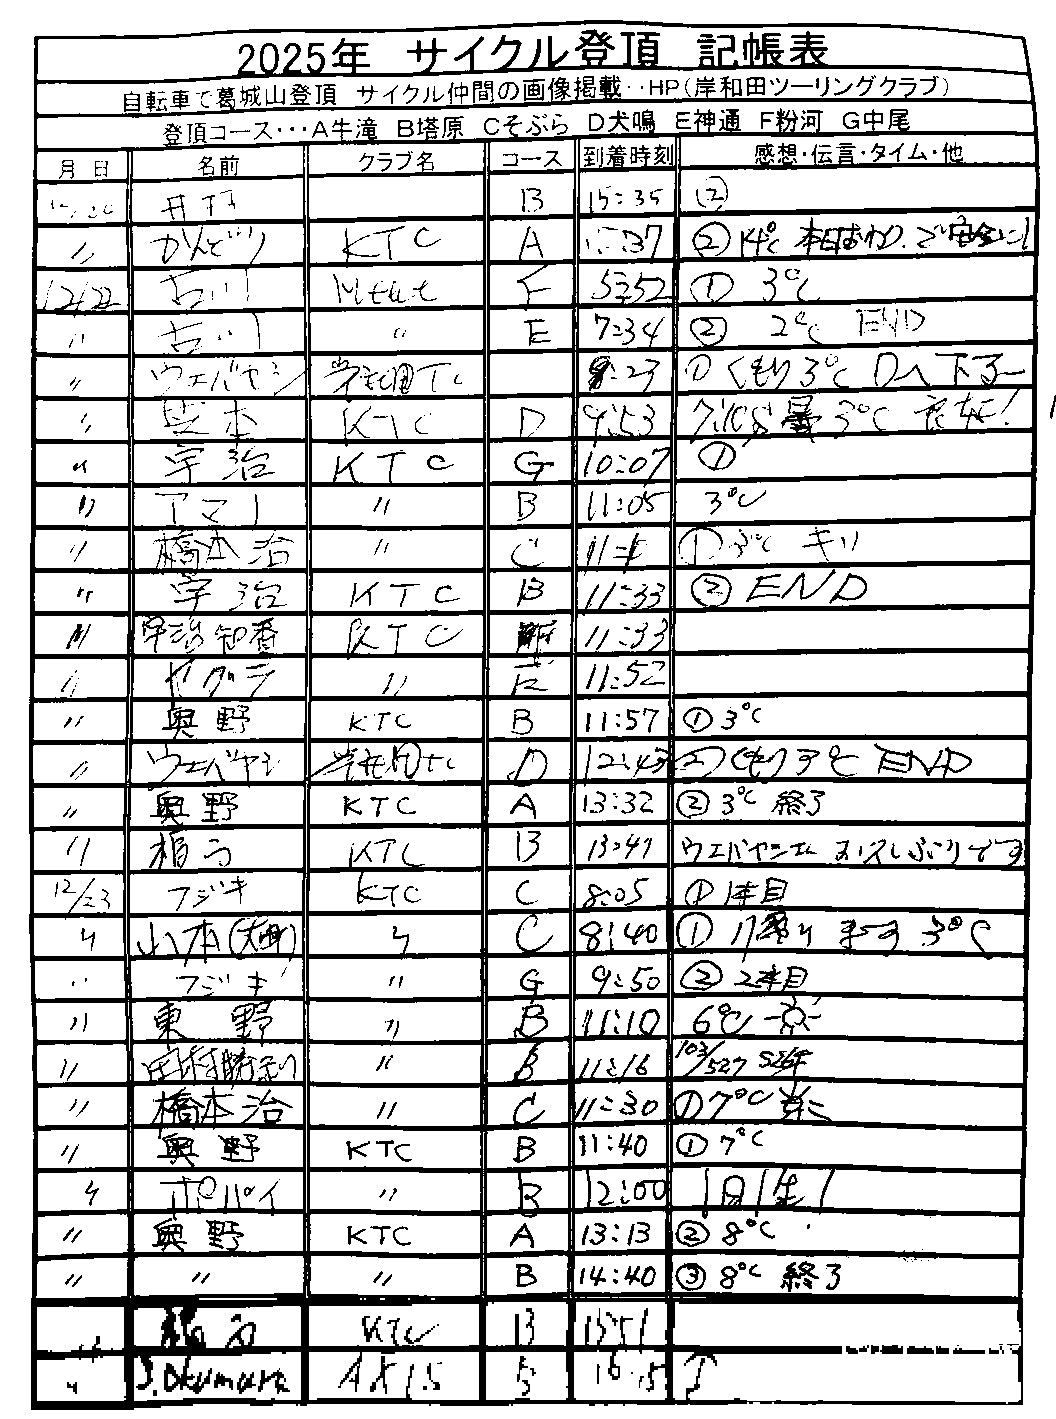 2025年 サイクル登頂 記帳表
自転車で葛城山登頂 サイクル仲間の画像掲載‥HP(岸和田ツーリングクラブ)
登頂コース‥‥A牛滝 B塔原 Cそぶら D犬鳴 E神通 F粉河 G中尾
月 日 名前 クラブ名 コース 到着時刻 感想・伝言・タイム・他
B 15:35 ②
〃 かんどり KTC A :37 ② 14℃ 本日おわり.
12/22 古川 F 5:52 ① 3℃
〃 古川 〃 E 7:34 ② 2℃ END
〃 ウエバヤシ :23 ① くもり 3℃ Dへ下る
〃 岸本 KTC D 9:53 3℃
〃 宇治 KTC G 10:07 ①
〃 アマノ 〃 B 11:05 3℃
〃 橋本 治 〃 C ① 3℃ キリ
〃 宇治 KTC B 11:33 ② END
〃 宇治 知香 KTC 11:33
〃 〃 11:52
〃 奥野 KTC B 11:57 ① 3℃
〃 ウエバヤシ D 12:43 ② くもり 3℃ END
〃 奥野 KTC A 13:32 ② 3℃ 終了
〃 KTC B 13:47 おひさしぶりです
12/23 フジキ KTC C 8:05 ① 1本目
〃 山本 〃 C 8:40 ① ます 3℃
〃 フジキ 〃 G 9:50 ② 2本目
〃 東野 〃 B 11:10 6℃
〃 田村勝利 〃 B 11:16 103/527
〃 橋本 治 〃 C 11:30 ① 7℃
〃 奥野 KTC B 11:40 ① 7℃
〃 ポパイ 〃 B 12:00 1日1生!
〃 奥野 KTC A 13:13 ② 8℃
〃 〃 〃 B 14:40 ③ 8℃ 終了
KTC B
〃 J.Okumura 16:15